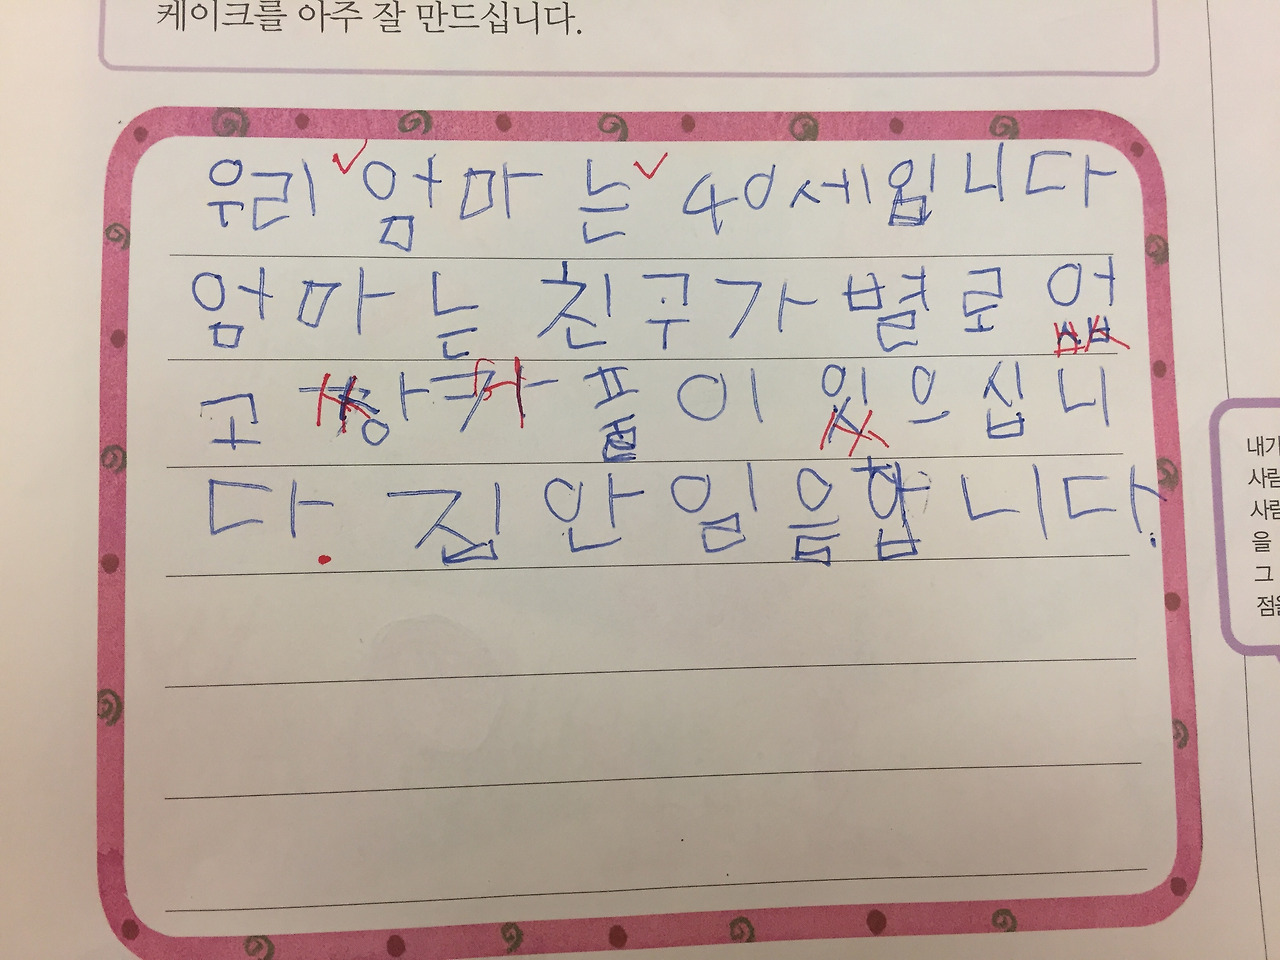 케이크를 아주 잘 만드십니다.
우리 엄마는 40세입니다
엄마는 친구가 별로 없
고 쌍꺼풀이 있으십니
다. 집안일을합니다.
내가
사람
사람
을
그
점을